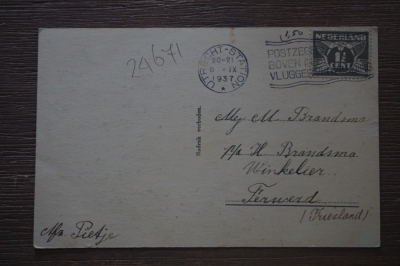 24671
1,50
UTRECHT-STATION
20-21
IX
1937
POSTZE
BOVEN
VLUGGE
NEDERLAND
1½
CENT
Mej M Brandsma
p/a H Brandsma
Winkelier
Ferwerd
(Friesland)
Nadruk verboden.
Afz Pietje